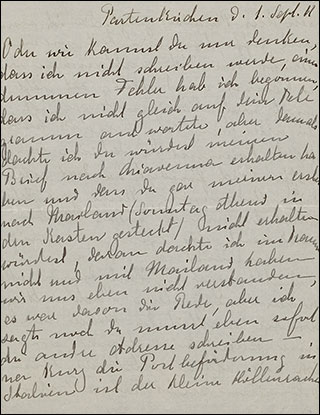 Partenkirchen d. 1. Sept. 11
O du wie kannst du nur denken,
dass ich nicht schreiben werde, einen
dummen Fehler hab ich begonnen,
dass ich nicht gleich auf dein Tele
gramm antwortete, aber damals
dachte ich du würdest meinen
Brief nach Chiavenna erhalten ha
ben und dass du gar meinen ersten
nach Mailand (Sonntag Abend in
den Kasten gesteckt) nicht erhalten
würdest, daran dachte ich im
nicht und mit Mailand haben
wir uns eben nicht verstanden,
es war davon die Rede, aber ich
sagte noch du musst eben sofort
die andre Adresse schreiben —
nur kurz die Postbeförderung in
Italien ist der kleine Höllenrache